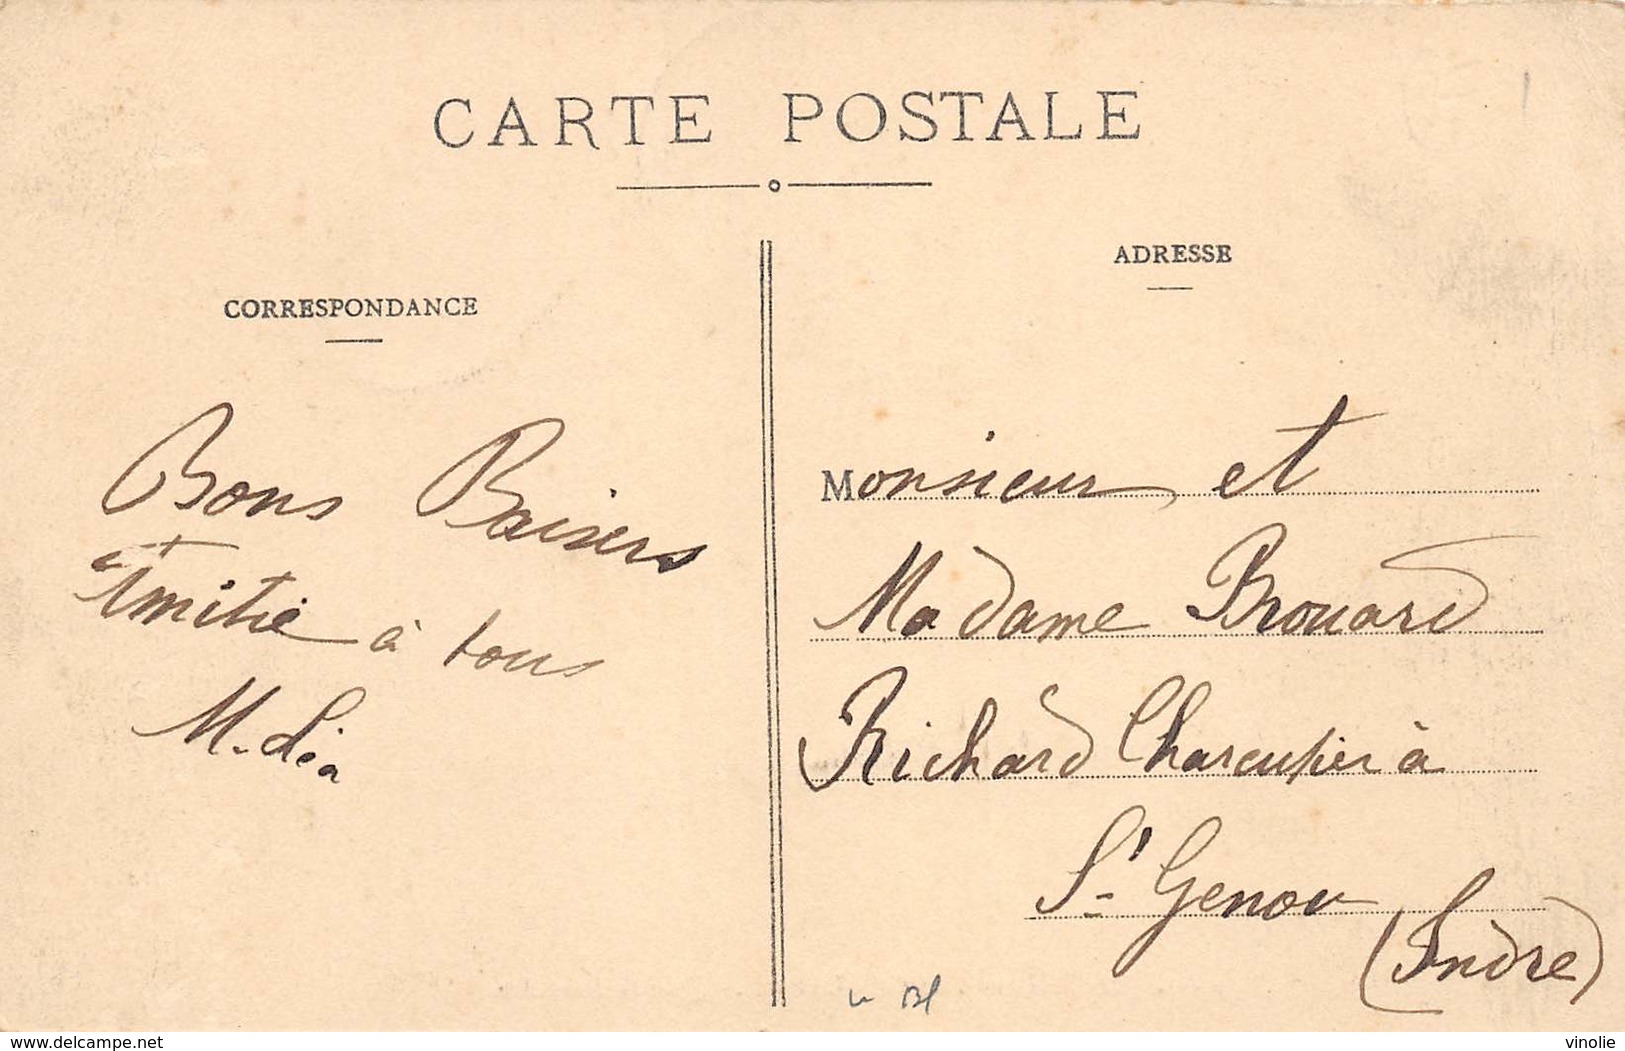 CARTE POSTALE
CORRESPONDANCE
Bons Baisers
Amitié à tous
M. Léa
ADRESSE
Monsieur et
Madame Brouard
Richard Charcutier à
St Genou
(Indre)
delcampe.net
vinolie